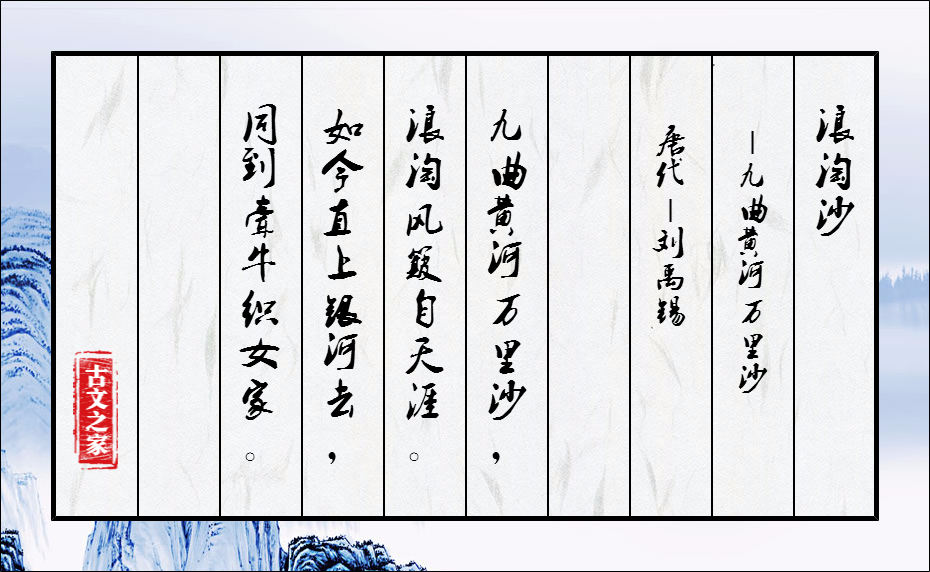 浪淘沙
—九曲黄河万里沙
唐代—刘禹锡
九曲黄河万里沙，
浪淘风簸自天涯。
如今直上银河去，
同到牵牛织女家。
古文之家